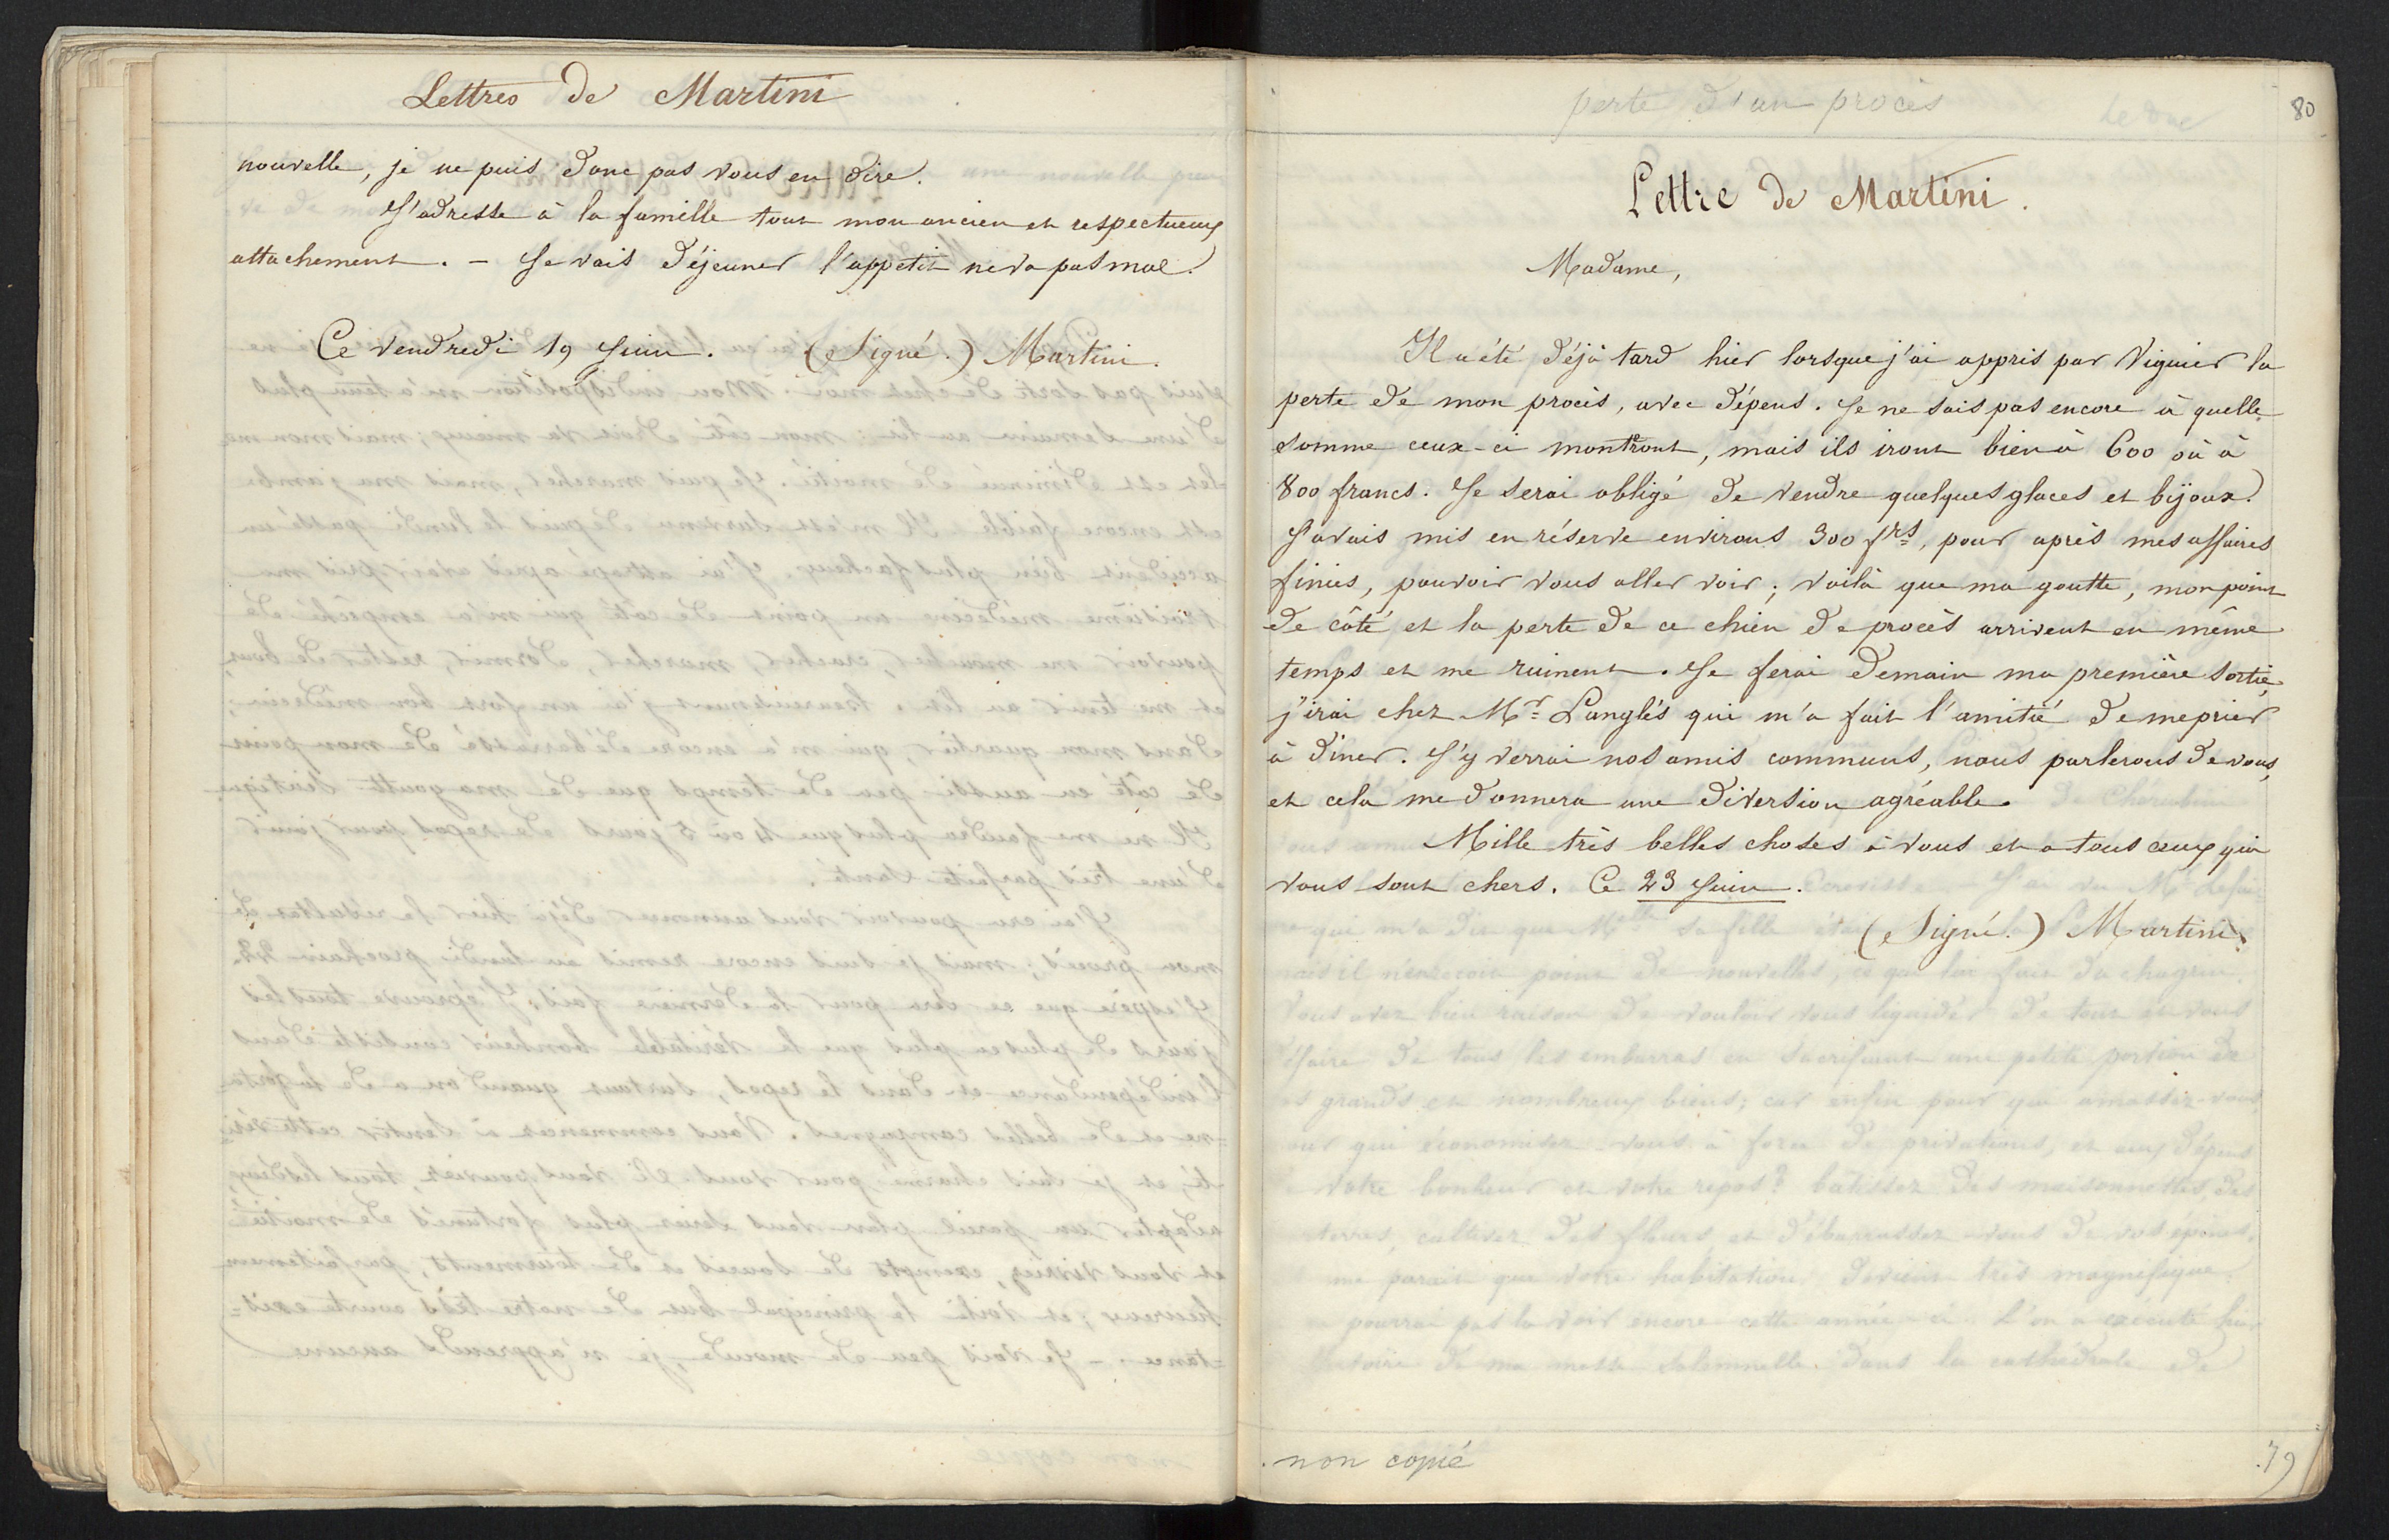 Lettres de Martini
nouvelle, je ne puis donc pas vous en dire.
J'adresse à la famille tout mon ancien et respectueux
attachement. – Je vais déjeuner l'appetit ne va pas mal.
Ce vendredi 19 Juin. (Signé.) Martini.
perte d'un procès
80
Lettre de Martini.
Madame,
Il a été déjà tard hier lorsque j'ai appris par Viguier la
perte de mon procès, avec dépens. Je ne sais pas encore à quelle
somme ceux-ci montront, mais ils iront bien à 600 où à
800 francs. Je serai obligé de vendre quelques glaces et bijoux.
J'avais mis en réserve environs 300 frs, pour après mes affaires
finies, pouvoir vous aller voir; voilà que ma goutte, mon point
de côté et la perte de ce chien de procès arrivent en même
temps et me ruinent. Je ferai demain ma première sortie,
j'irai chez Mr Langlés qui m'a fait l'amitié de me prier
à dîner. J'y verrai nos amis communs, nous parlerons de vous,
et cela me donnera une diversion agréable.
Mille très belles choses à vous et a tous ceux qui
vous sont chers. Ce 23 Juin.
(Signé.) Martini.
non copié
79